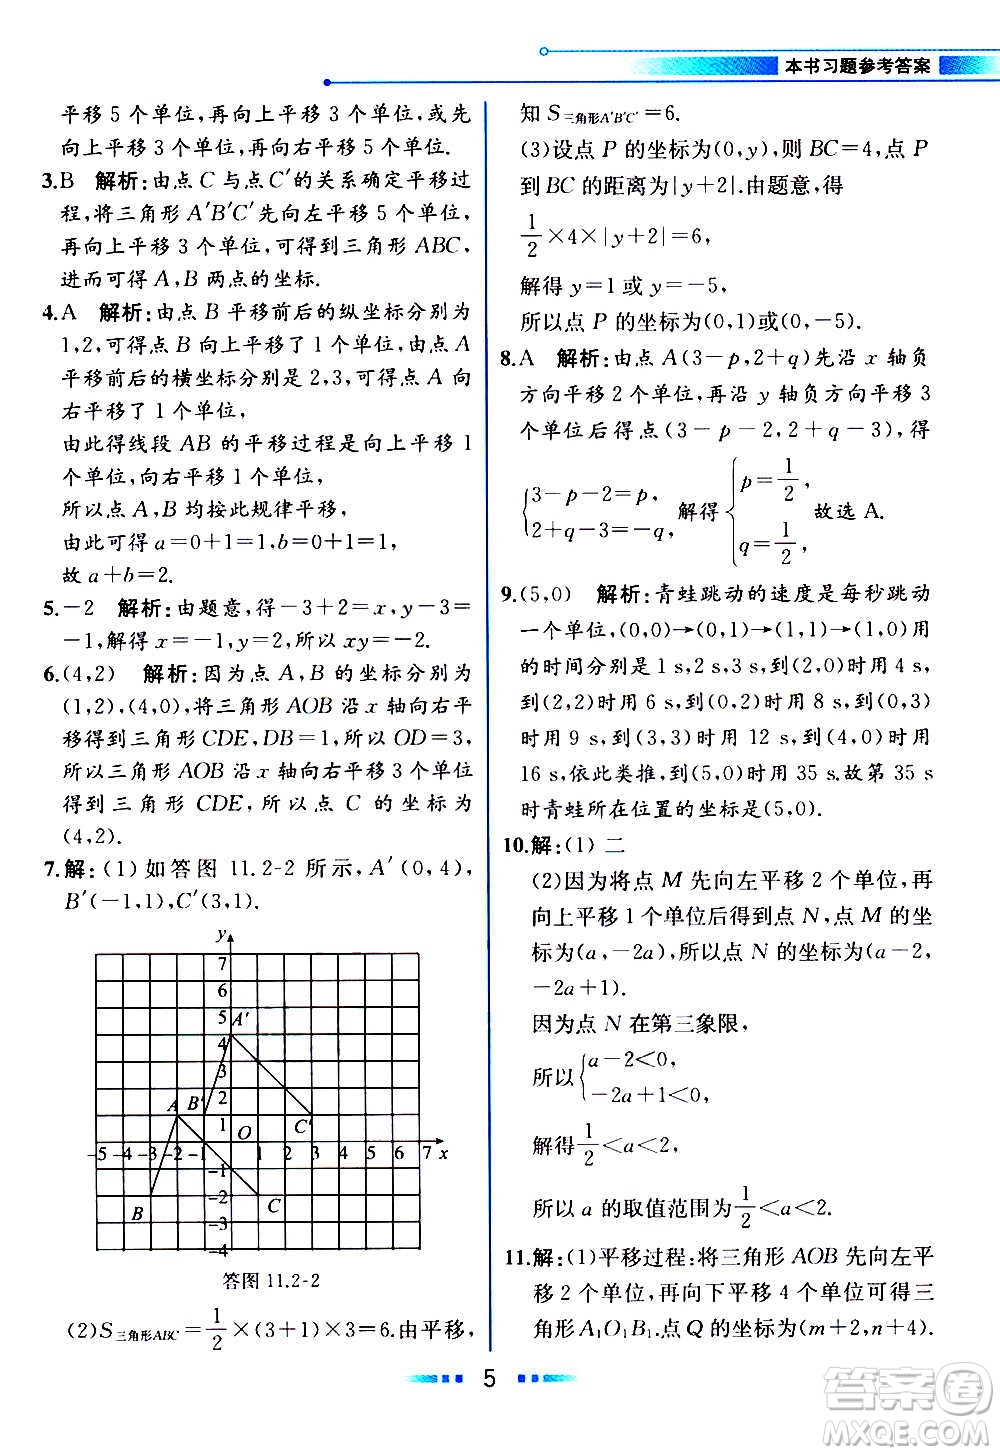 本书习题参考答案
平移 5 个单位,再向上平移 3 个单位,或先
向上平移 3 个单位,再向右平移 5 个单位.
3.B 解析:由点 C 与点 C′的关系确定平移过
程,将三角形 A′B′C′先向左平移 5 个单位,
再向上平移 3 个单位,可得到三角形 ABC,
进而可得 A,B 两点的坐标.
4.A 解析:由点 B 平移前后的纵坐标分别为
1,2,可得点 B 向上平移了 1 个单位,由点 A
平移前后的横坐标分别是 2,3,可得点 A 向
右平移了 1 个单位,
由此得线段 AB 的平移过程是向上平移 1
个单位,向右平移 1 个单位,
所以点 A,B 均按此规律平移,
由此可得 a=0+1=1,b=0+1=1,
故 a+b=2.
5.-2 解析:由题意,得-3+2=x,y-3=
-1,解得 x=-1,y=2,所以 xy=-2.
6.(4,2) 解析:因为点 A,B 的坐标分别为
(1,2),(4,0),将三角形 AOB 沿 x 轴向右平
移得到三角形 CDE,DB=1,所以 OD=3,
所以三角形 AOB 沿 x 轴向右平移 3 个单位
得到三角形 CDE,所以点 C 的坐标为
(4,2).
7.解:(1)如答图 11.2-2 所示,A′(0,4),
B′(-1,1),C′(3,1).
y
7
6
5 A′
4
3
2
A B′ 1 O C′
-5 -4 -3 -2 -1 1 2 3 4 5 6 7 x
-1
-2
B C
-3
-4
答图 11.2-2
(2)S三角形ABC=1/2×(3+1)×3=6.由平移,
知 S三角形A′B′C′=6.
(3)设点 P 的坐标为(0,y),则 BC=4,点 P
到 BC 的距离为|y+2|.由题意,得
1/2×4×|y+2|=6,
解得 y=1 或 y=-5,
所以点 P 的坐标为(0,1)或(0,-5).
8.A 解析:由点 A(3-p,2+q)先沿 x 轴负
方向平移 2 个单位,再沿 y 轴负方向平移 3
个单位后得点(3-p-2,2+q-3),得
{3-p-2=p, 2+q-3=-q, 解得{p=1/2, q=1/2, 故选 A.
9.(5,0) 解析:青蛙跳动的速度是每秒跳动
一个单位,(0,0)→(0,1)→(1,1)→(1,0)用
的时间分别是 1 s,2 s,3 s,到(2,0)用 4 s
,到(2,2)时用 6 s,到(0,2)时用 8 s,到(0,3)
时用 9 s,到(3,3)时用 12 s,到(4,0)时用
16 s,依此类推,到(5,0)用 35 s.故第 35 s
时青蛙所在位置的坐标是(5,0).
10.解:(1)二
(2)因为将点 M 先向左平移 2 个单位,再
向上平移 1 个单位后得到点 N,点 M 的坐
标为(a,-2a),所以点 N 的坐标为(a-2,
-2a+1).
因为点 N 在第三象限,
所以{a-2<0, -2a+1<0,
解得1/2<a<2,
所以 a 的取值范围为1/2<a<2.
11.解:(1)平移过程:将三角形 AOB 先向左平
移 2 个单位,再向下平移 4 个单位可得三
角形 A₁O₁B₁.点 Q 的坐标为(m+2,n+4).
5
答案圈
MXQE.COM